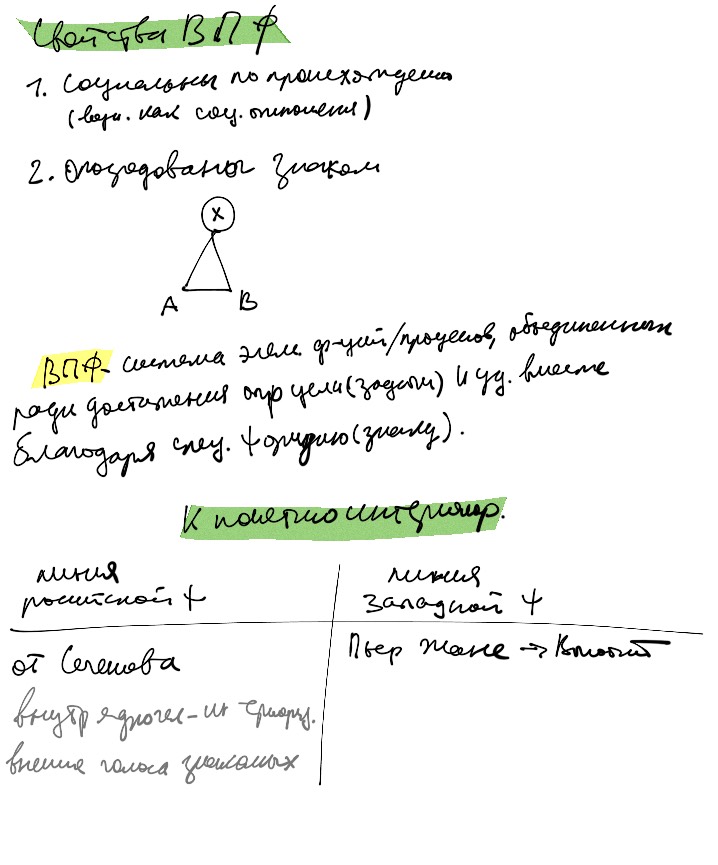 Свойства ВПФ
1. Социальны по происхождению
(возн. как соц. отношения)
2. Опосредованы знаком
X
A B
ВПФ - система элем. ф-ций/процессов, объединенных
ради достижения опр цели (задачи) и уд. вместе
благодаря спец. Ψ орудию (знаку).
К понятию интериор.
линия
российской Ψ
линия
Западной Ψ
от Сеченова
Пьер Жане → Выготский
внутр я - интериориз.
внешние голоса знакомых